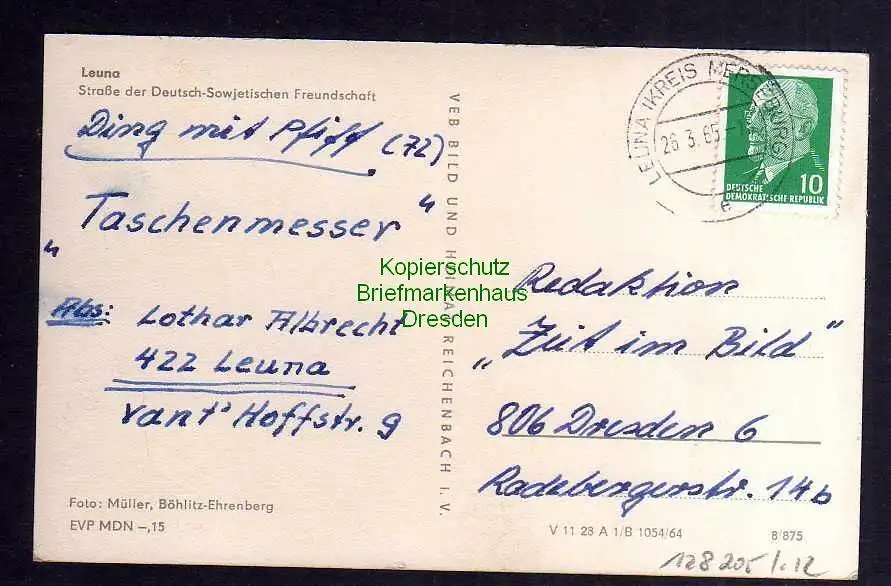 Leuna
Straße der Deutsch-Sowjetischen Freundschaft
Ding mit Pfiff (72)
"Taschenmesser"
Abs: Lothar Albrecht
422 Leuna
vant' Hoffstr. 9
Foto: Müller, Böhlitz-Ehrenberg
EVP MDN –,15
VEB BILD UND HEIMAT REICHENBACH I. V.
LEUNA (KREIS MERSEBURG)
26.3.65
e
10
DEUTSCHE
DEMOKRATISCHE REPUBLIK
Redaktion
"Zeit im Bild"
806 Dresden 6
Radebergerstr. 14b
V 11 28 A 1/B 1054/64
8/875
128205/.12
Kopierschutz
Briefmarkenhaus
Dresden